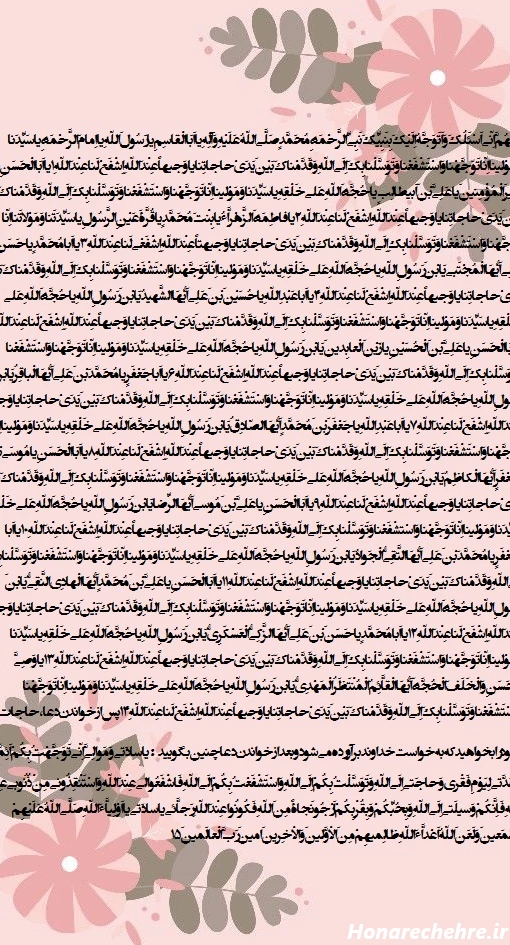 هُمَّ اِنّی اَسئَلُکَ وَاَتَوَجَّهُ اِلَیکَ بِنَبِیِّکَ نَبِیِّ الرَّحمَهِ مُحَمَّدٍ صَلَّی اللهُ عَلَیهِ وَآلِهِ یا اَبَا القاسِمِ یا رَسُولَ اللهِ یا اِمامَ الرَّحمَهِ یا سَیِّدَنا
مَولینا اِنّا تَوَجَّهنا وَاستَشفَعنا وَتَوَسَّلنا بِکَ اِلَی اللهِ وَقَدَّمناکَ بَینَ یَدَی حاجاتِنا یا وَجیهاً عِندَ اللهِ اِشفَع لَنا عِندَ اللهِ ۱ یا اَبَا الحَسَنِ
یرَ المُؤمِنینَ یا عَلِیَّ بنَ اَبیطالِبٍ یا حُجَّهَ اللهِ عَلی خَلقِهِ یا سَیِّدَنا وَمَولینا اِنّا تَوَجَّهنا وَاستَشفَعنا وَتَوَسَّلنا بِکَ اِلَی اللهِ وَقَدَّمناکَ
نَ یَدَی حاجاتِنا یا وَجیهاً عِندَ اللهِ اِشفَع لَنا عِندَ اللهِ ۲ یا فاطِمَهَ الزَّهراءُ یا بِنتَ مُحَمَّدٍ یا قُرَّهَ عَینِ الرَّسُولِ یا سَیِّدَتَنا وَمَولاتَنا اِنّا
جَّهنا وَاستَشفَعنا وَتَوَسَّلنا بِکِ اِلَی اللهِ وَقَدَّمناکِ بَینَ یَدَی حاجاتِنا یا وَجیههً عِندَ اللهِ اِشفَعی لَنا عِندَ اللهِ ۳ یا اَبا مُحَمَّدٍ یا حَسَنَ
یٍّ اَیُّهَا المُجتَبی یَابنَ رَسُولِ اللهِ یا حُجَّهَ اللهِ عَلی خَلقِهِ یا سَیِّدَنا وَمَولینا اِنّا تَوَجَّهنا وَاستَشفَعنا وَتَوَسَّلنا بِکَ اِلَی اللهِ وَقَدَّمناکَ
ی حاجاتِنا یا وَجیهاً عِندَ اللهِ اِشفَع لَنا عِندَ اللهِ ۴ یا اَبا عَبدِ اللهِ یا حُسَینَ بنَ عَلِیٍّ اَیُّهَا الشَّهیدُ یَابنَ رَسُولِ اللهِ یا حُجَّهَ اللهِ عَلی
لقِهِ یا سَیِّدَنا وَمَولینا اِنّا تَوَجَّهنا وَاستَشفَعنا وَتَوَسَّلنا بِکَ اِلَی اللهِ وَقَدَّمناکَ بَینَ یَدَی حاجاتِنا یا وَجیهاً عِندَ اللهِ اِشفَع لَنا عِندَ
بَا الحَسَنِ یا عَلِیَّ بنَ الحُسَینِ یا زَینَ العابِدینَ یَابنَ رَسُولِ اللهِ یا حُجَّهَ اللهِ عَلی خَلقِهِ یا سَیِّدَنا وَمَولینا اِنّا تَوَجَّهنا وَاستَشفَعنا
وَسَّلنا بِکَ اِلَی اللهِ وَقَدَّمناکَ بَینَ یَدَی حاجاتِنا یا وَجیهاً عِندَ اللهِ اِشفَع لَنا عِندَ اللهِ ۶ یا اَبا جَعفَرٍ یا مُحَمَّدَ بنَ عَلِیٍّ اَیُّهَا الباقِرُ یَابنَ
ولِ اللهِ یا حُجَّهَ اللهِ عَلی خَلقِهِ یا سَیِّدَنا وَمَولینا اِنّا تَوَجَّهنا وَاستَشفَعنا وَتَوَسَّلنا بِکَ اِلَی اللهِ وَقَدَّمناکَ بَینَ یَدَی حاجاتِنا یا
دَ اللهِ اِشفَع لَنا عِندَ اللهِ ۷ یا اَبا عَبدِ اللهِ یا جَعفَرَ بنَ مُحَمَّدٍ اَیُّهَا الصّادِقُ یَابنَ رَسُولِ اللهِ یا حُجَّهَ اللهِ عَلی خَلقِهِ یا سَیِّدَنا وَمَولینا
وَجَّهنا وَاستَشفَعنا وَتَوَسَّلنا بِکَ اِلَی اللهِ وَقَدَّمناکَ بَینَ یَدَی حاجاتِنا یا وَجیهاً عِندَ اللهِ اِشفَع لَنا عِندَ اللهِ ۸ یا اَبَا الحَسَنِ یا مُوسَی
عفَرٍ اَیُّهَا الکاظِمُ یَابنَ رَسُولِ اللهِ یا حُجَّهَ اللهِ عَلی خَلقِهِ یا سَیِّدَنا وَمَولینا اِنّا تَوَجَّهنا وَاستَشفَعنا وَتَوَسَّلنا بِکَ اِلَی اللهِ وَقَدَّمناکَ
ی حاجاتِنا یا وَجیهاً عِندَ اللهِ اِشفَع لَنا عِندَ اللهِ ۹ یا اَبَا الحَسَنِ یا عَلِیَّ بنَ مُوسی اَیُّهَا الرِّضا یَابنَ رَسُولِ اللهِ یا حُجَّهَ اللهِ عَلی
یِّدَنا وَمَولینا اِنّا تَوَجَّهنا وَاستَشفَعنا وَتَوَسَّلنا بِکَ اِلَی اللهِ وَقَدَّمناکَ بَینَ یَدَی حاجاتِنا یا وَجیهاً عِندَ اللهِ اِشفَع لَنا عِندَ اللهِ ۱۰ یا اَبا
عفَرٍ یا مُحَمَّدَ بنَ عَلِیٍّ اَیُّهَا التَّقِیُّ الجَوادُ یَابنَ رَسُولِ اللهِ یا حُجَّهَ اللهِ عَلی خَلقِهِ یا سَیِّدَنا وَمَولینا اِنّا تَوَجَّهنا وَاستَشفَعنا وَتَوَسَّلنا
اللهِ وَقَدَّمناکَ بَینَ یَدَی حاجاتِنا یا وَجیهاً عِندَ اللهِ اِشفَع لَنا عِندَ اللهِ ۱۱ یا اَبَا الحَسَنِ یا عَلِیَّ بنَ مُحَمَّدٍ اَیُّهَا الهادِی النَّقِیُّ یَابنَ
ولِ اللهِ یا حُجَّهَ اللهِ عَلی خَلقِهِ یا سَیِّدَنا وَمَولینا اِنّا تَوَجَّهنا وَاستَشفَعنا وَتَوَسَّلنا بِکَ اِلَی اللهِ وَقَدَّمناکَ بَینَ یَدَی حاجاتِنا یا
دَ اللهِ اِشفَع لَنا عِندَ اللهِ ۱۲ یا اَبا مُحَمَّدٍ یا حَسَنَ بنَ عَلِیٍّ اَیُّهَا الزَّکِیُّ العَسکَرِیُّ یَابنَ رَسُولِ اللهِ یا حُجَّهَ اللهِ عَلی خَلقِهِ یا سَیِّدَنا
مَولینا اِنّا تَوَجَّهنا وَاستَشفَعنا وَتَوَسَّلنا بِکَ اِلَی اللهِ وَقَدَّمناکَ بَینَ یَدَی حاجاتِنا یا وَجیهاً عِندَ اللهِ اِشفَع لَنا عِندَ اللهِ ۱۳ یا وَصِیَّ
حَسَنِ وَالخَلَفَ الحُجَّهَ اَیُّهَا القآئِمُ المُنتَظَرُ المَهدِیُّ یَابنَ رَسُولِ اللهِ یا حُجَّهَ اللهِ عَلی خَلقِهِ یا سَیِّدَنا وَمَولینا اِنّا تَوَجَّهنا
ستَشفَعنا وَتَوَسَّلنا بِکَ اِلَی اللهِ وَقَدَّمناکَ بَینَ یَدَی حاجاتِنا یا وَجیهاً عِندَ اللهِ اِشفَع لَنا عِندَ اللهِ ۱۳ پس از خواندن دعا، حاجات
ود را بخواهید که به خواست خداوند برآورده می شود و بعد از خواندن دعا چنین بگویید : یا سادَتی وَمَوالِیَّ اِنّی تَوَجَّهتُ بِکُم
عُدَّتی لِیَومِ فَقری وَحاجَتی اِلَی اللهِ وَتَوَسَّلتُ بِکُم اِلَی اللهِ وَاستَشفَعتُ بِکُم اِلَی اللهِ فَاشفَعُوا لی عِندَ اللهِ وَاستَنقِذُونی مِن ذُنُوبی
فَاِنَّکُم وَسیلَتی اِلَی اللهِ وَبِحُبِّکُم وَبِقُربِکُم اَرجُو نَجاهً مِنَ اللهِ فَکُونُوا عِندَ اللهِ رَجآئی یا سادَتی یا اَولِیآءَ اللهِ صَلَّی اللهُ عَلَیهِم
مَعینَ وَلَعَنَ اللهُ اَعدآءَ اللهِ ظالِمیهِم مِنَ الاَوَّلینَ وَالآخِرینَ آمینَ رَبَّ العالَمینَ ۱۵
Honarechehre.ir